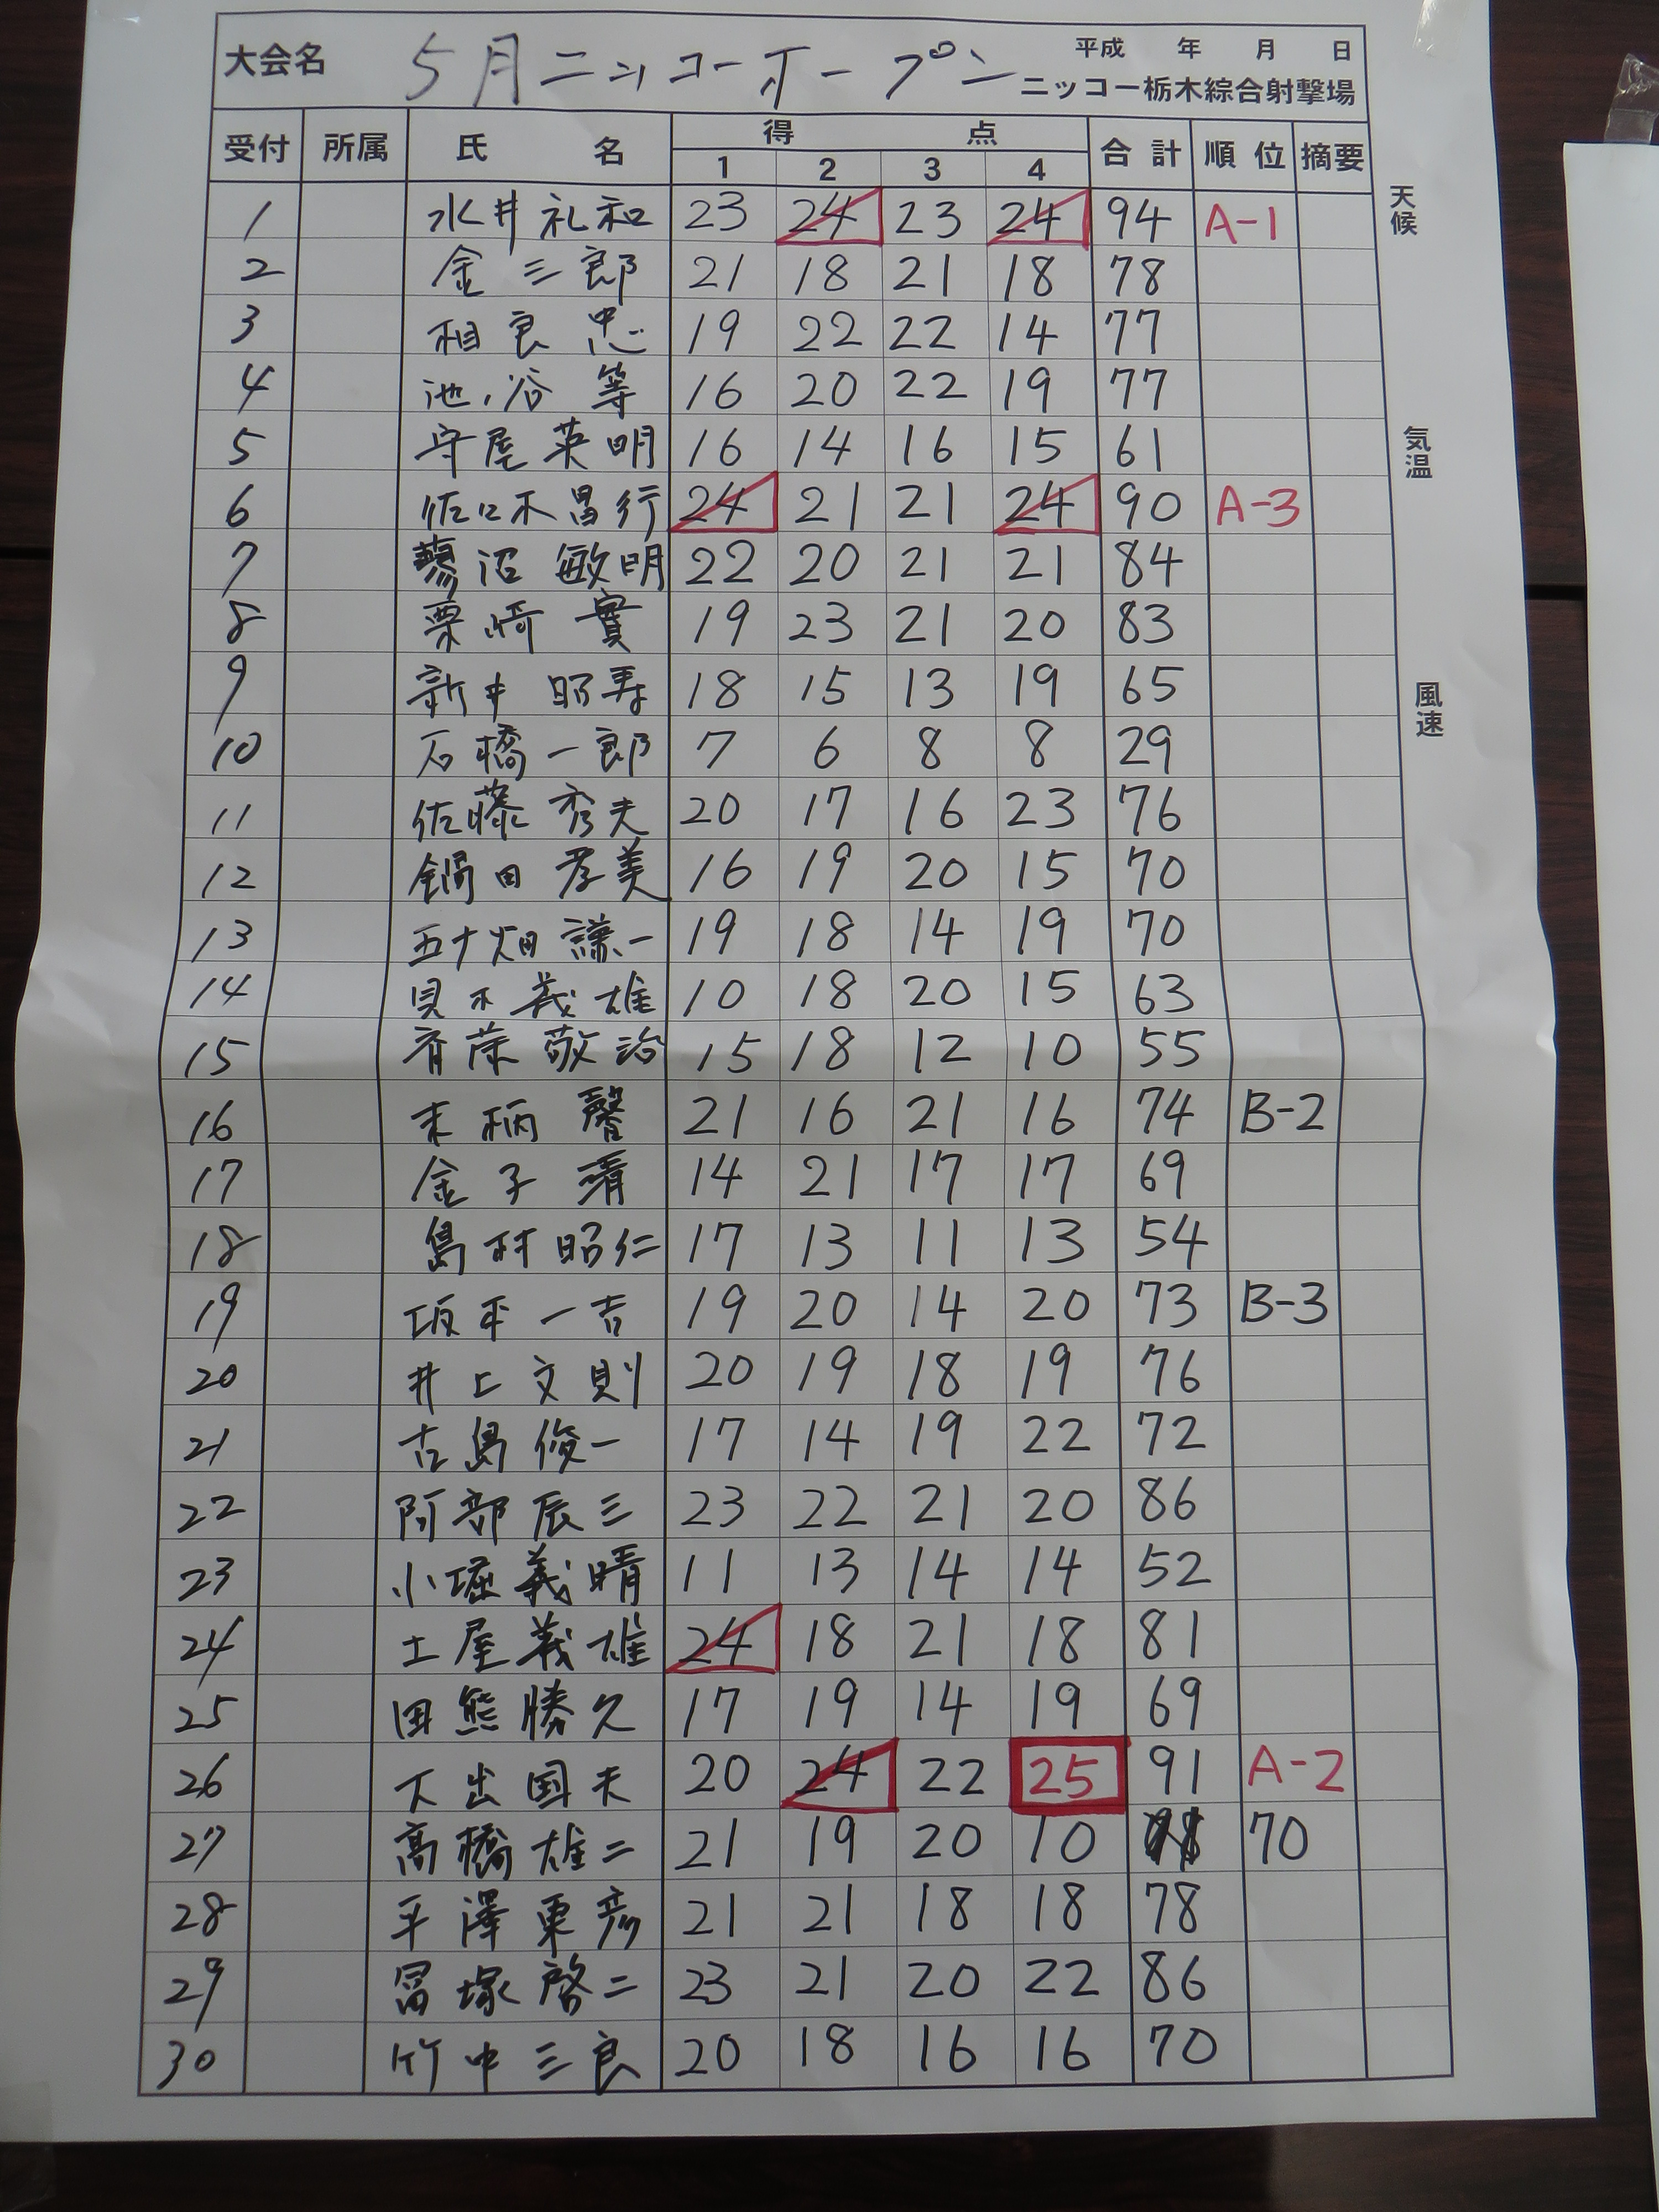 大会名 5月ニッコーオープン 平成 年 月 日
ニッコー栃木綜合射撃場
受付 所属 氏 名 得 点 合計 順位 摘要
1 2 3 4
1 水井礼和 23 24 23 24 94 A-1
2 金三郎 21 18 21 18 78
3 相良忠 19 22 22 14 77
4 池ノ谷等 16 20 22 19 77
5 守屋英明 16 14 16 15 61
6 佐々木昌行 24 21 21 24 90 A-3
7 沼敏明 22 20 21 21 84
8 栗崎實 19 23 21 20 83
9 新井昭寿 18 15 13 19 65
10 石橋一郎 7 6 8 8 29
11 佐藤秀夫 20 17 16 23 76
12 鍋田孝美 16 19 20 15 70
13 五十畑謙一 19 18 14 19 70
14 義雄 10 18 20 15 63
15 斉藤敬治 15 18 12 10 55
16 末柄馨 21 16 21 16 74 B-2
17 金子靖 14 21 17 17 69
18 島村昭仁 17 13 11 13 54
19 坂平一吉 19 20 14 20 73 B-3
20 井上文則 20 19 18 19 76
21 古島俊一 17 14 19 22 72
22 阿部辰三 23 22 21 20 86
23 小堀義晴 11 13 14 14 52
24 土屋義雄 24 18 21 18 81
25 田熊勝久 17 19 14 19 69
26 大出国夫 20 24 22 25 91 A-2
27 高橋雄二 21 19 20 10 70
28 平澤東彦 21 21 18 18 78
29 冨塚啓二 23 21 20 22 86
30 竹中三良 20 18 16 16 70
天候
気温
風速